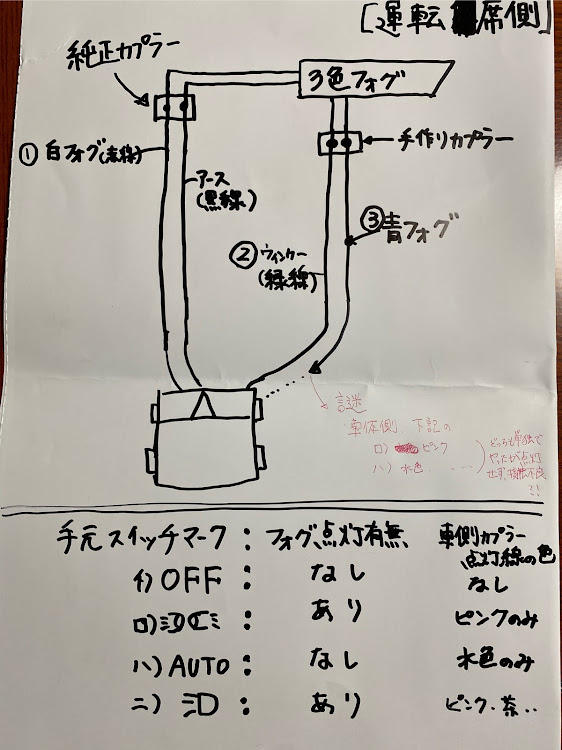 [運転席側]
純正カプラー
3色フォグ
手作りカプラー
① 白フォグ(赤線)
アース
(黒線)
③青フォグ
② ウィンカー
(緑線)
謎
車体側 下記の
ロ) ピンク
ハ) 水色 ・・・
どっちも単独で
やったが点灯
せず、接触不良
?!
手元スイッチマーク : フォグ点灯有無 車側カプラー
点灯線の色
イ) OFF : なし なし
ロ) : あり ピンクのみ
ハ) AUTO : なし 水色のみ
ニ) : あり ピンク・茶・・